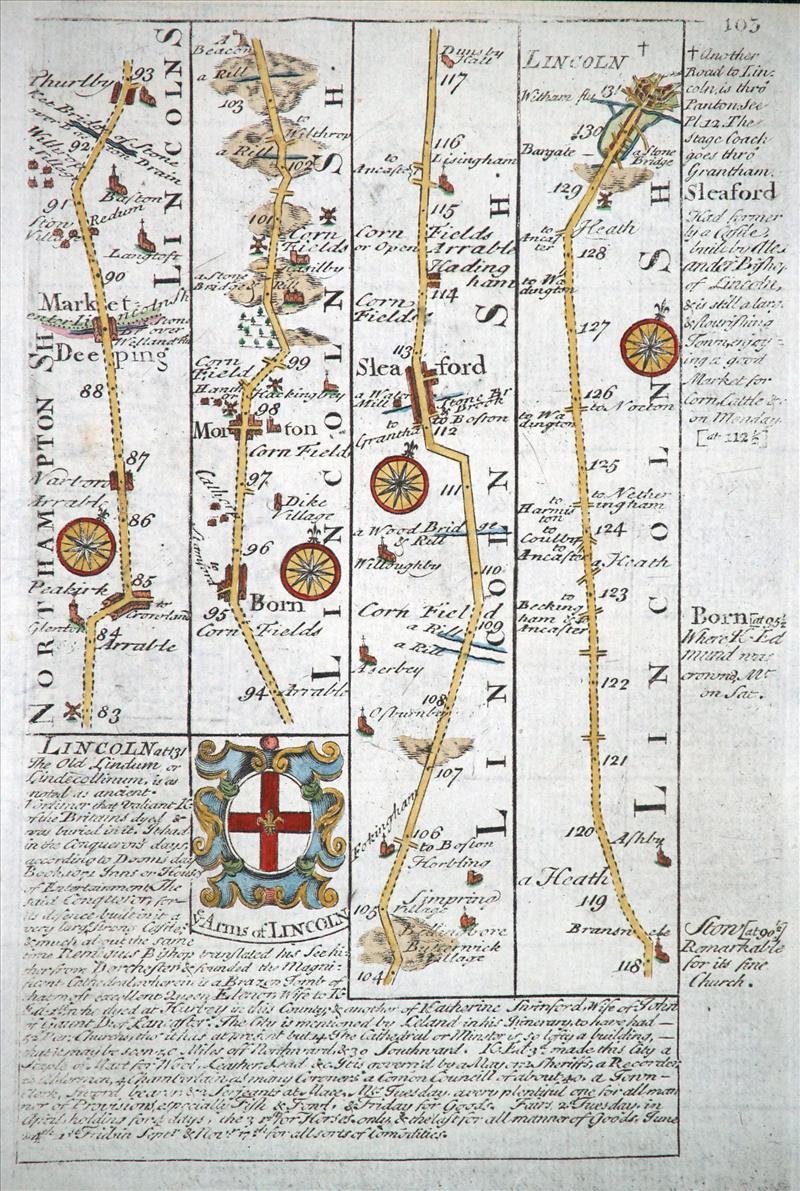 103
LINCOLNS
Phurlby
93
92
Drain
91
Baston
Redum
Langtoft
90
Market
Deeping
Welland
88
87
Arrable
86
Peakirk
85
to Crowland
Glenton
84
Arrable
83
NORTHAMPTON SH
A Beacon
a Rill
103
to
Wilthrop
a Rill
102
101
Corn
Fields
a Stone
Bridge &
Rill
99
Corn
Field
Hackingby
98
Morton
Corn Field
97
Dike
Village
96
Born
95
Corn Fields
94
Arrable
LINCOLN SH.
Dunsby
Hall
117
116
to
Ancaster
Lisingham
115
Corn Fields
or Open Arrable
Hading
ham
114
Corn
Fields
113
Sleaford
a Water
Mill
Stone Br
& Brook
to Boston
to
Grantham
112
111
a Wood Bridge
& Rill
Willoughby
110
Corn Field
109
a Rill
a Rill
Aserbey
108
Osburnby
107
Fokingham
106
to Boston
Horbling
105
Simpring
Village
Village
104
LINCOLN SH.
LINCOLN
Witham flu
131
130
Bargate
a Stone
Bridge
129
to
Ancaster
Heath
128
to Wa
dington
127
126
to Wa
dington
to Nocton
125
to
Harms
ton
to Nether
ingham
124
to
Coulby
to
Ancaster
a Heath
123
to
Becking
ham &
Ancaster
122
121
120
Ashby
a Heath
119
118
LINCOLN SH
† Another
Road to Lin
coln, is thro'
Panton See
Pl. 12. The
Stage Coach
goes thro'
Grantham.
Sleaford
Had former
ly a Castle,
built by Alex
ander Bishop
of Lincoln,
& is still a large
& flourishing
Town, enjoy-
ing a good
Market for
Corn Cattle &c
on Monday
[at 112½]
Born [at 95½]
Where K. Ed
mund was
crowned, Mt.
on Sat.
Ston [at 90½]
Remarkable
for its fine
Church.
LINCOLN at 131
The Old Lindum or
Lindecollinum, is as
noted as ancient
Vortimer that Valiant K.
of the Britains dyed &
was buried in it. It had
in the Conquerors days
according to Dooms day
Book 1070 Inns or Houses
of Entertainment. The
said Conqueror, for
its defence built in it a
very large strong Castle,
& much about the same
time Remigius Bishop translated his See hi-
ther from Dorchester & founded the Magni-
ficent Cathedral, wherein is a Brazen Tomb of
that most excellent Queen Elenor Wife to K.
who dyed at Harbey in this County & another of Katherine Swinford, Wife of John
of Gaunt D. of Lancaster. The City is mentioned by Leland in his Itinerary, to have had
Churches, tho' it has at present but 14. The Cathedral or Minster is so lofty a building,
that it may be seen 50 Miles off Northward, & 30 Southward. K. Ed. 3d. made this City a
Staple or Mart for Wool, Leather, Lead &c. It is govern'd by a Mayor, 2 Sheriffs, a Recorder,
Aldermen, 4 Chamberlains as many Coroners a Comon Councill of about 40, a Town-
Clerk, Sword bearer & Serjeants at Mace. Mt. Tuesday, a very plentiful one for all man
ner of Provisions, especially Fish & Fowl, & Friday for Goods. Fairs 2d. Tuesday in
April holding for days, the 3 1st. for Horses only, & the last for all manner of Goods, June
24th. 1st. Frid. in Septr. & Novr. 17th. for all sorts of Comodities.
ye Arms of LINCOLN